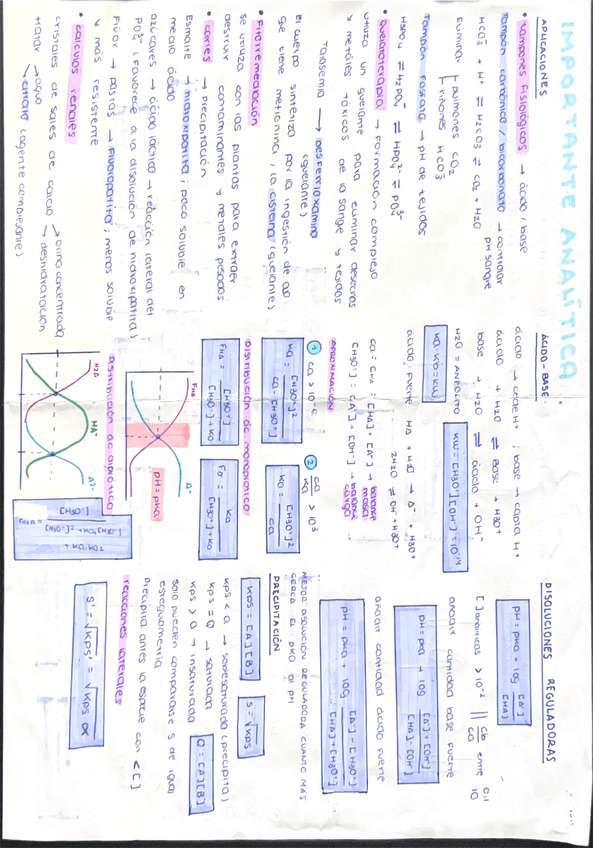 IMPORTANTE ANALÍTICA
APLICACIONES
• tampones fisiológicos → ácido/base
Tampón carbónico/bicarbonato → controlar
pH sangre
HCO3⁻ + H⁺ ⇌ H2CO3 ⇌ CO2 + H2O
Eliminar pulmones CO2
riñones HCO3⁻
Tampón fosfato → pH de tejidos
H3PO4 ⇌ H2PO4⁻ ⇌ HPO4²⁻ ⇌ PO4³⁻
• Quelatoterapia → Formación complejo
utiliza un quelante para eliminar desechos
y metales tóxicos de la sangre y tejidos
Talasemia → desferrioxamina
(quelante)
El cuerpo sintetiza por la ingestión de
que tiene metionina, la cisteína (quelante)
• Fitorremediación
se utiliza con las plantas para extraer
destruir contaminantes y metales pesados
• caries → Precipitación
Esmalte → hidroxiapatita; poco soluble en
medio ácido
azúcares → ácido láctico → reacción lateral del
PO4³⁻ (Favorece a la disolución de hidroxiapatita)
Flúor → pastas → Fluorapatita; menos soluble
y más resistente
• cálculos renales
cristales de sales de calcio orina concentrada
deshidratación
tratar → agua
→ citrato (agente complejante)
ÁCIDO-BASE
ácido → cede H⁺; base → capta H⁺
ácido + H2O ⇌ Base + H3O⁺
base + H2O ⇌ ácido + OH⁻
H2O = ANFÓLITO
KW = [H3O⁺][OH⁻] = 10⁻¹⁴
Ka · Kb = KW
ácido fuerte HA + H2O → A⁻ + H3O⁺
2H2O ⇌ OH⁻ + H3O⁺
Ca = CHA = [HA] + [A⁻] → balance masa
[H3O⁺] = [A⁻] + [OH⁻] → balance carga
APROXIMACIÓN
1
2 Ca/Ka > 10³
Ka = [H3O⁺]² / Ca - [H3O⁺]
Ka = [H3O⁺]² / Ca
distribución de monoprótico
FHA = [H3O⁺] / [H3O⁺] + Ka
FA⁻ = Ka / [H3O⁺] + Ka
FHA
A⁻
pH = pKa
distribución de diprótico
H2A
HA⁻
A²⁻
FH2A = [H3O⁺]² / [H3O⁺]² + Ka1[H3O⁺] + Ka1Ka2
DISOLUCIONES REGULADORAS
pH = pKa + log [A⁻] / [HA]
Cb/Ca entre 0,1 10
añadir cantidad base fuerte
pH = pKa + log [A⁻] + [OH⁻] / [HA] - [OH⁻]
añadir cantidad ácido fuerte
pH = pKa + log [A⁻] - [H3O⁺] / [HA] + [H3O⁺]
MEJOR DISOLUCIÓN REGULADORA CUANTO MÁS
CERCA EL pKa al pH
PRECIPITACIÓN
Kps = [A][B]
S = √Kps
Kps < Q → sobresaturada (precipita)
Kps = Q → saturada
Kps > Q → insaturada
Q = [A][B]
solo pueden compararse S de igual
estequiometría
Precipita antes la especie con < [ ]
reacciones laterales
S' = √Kps' = √Kps α